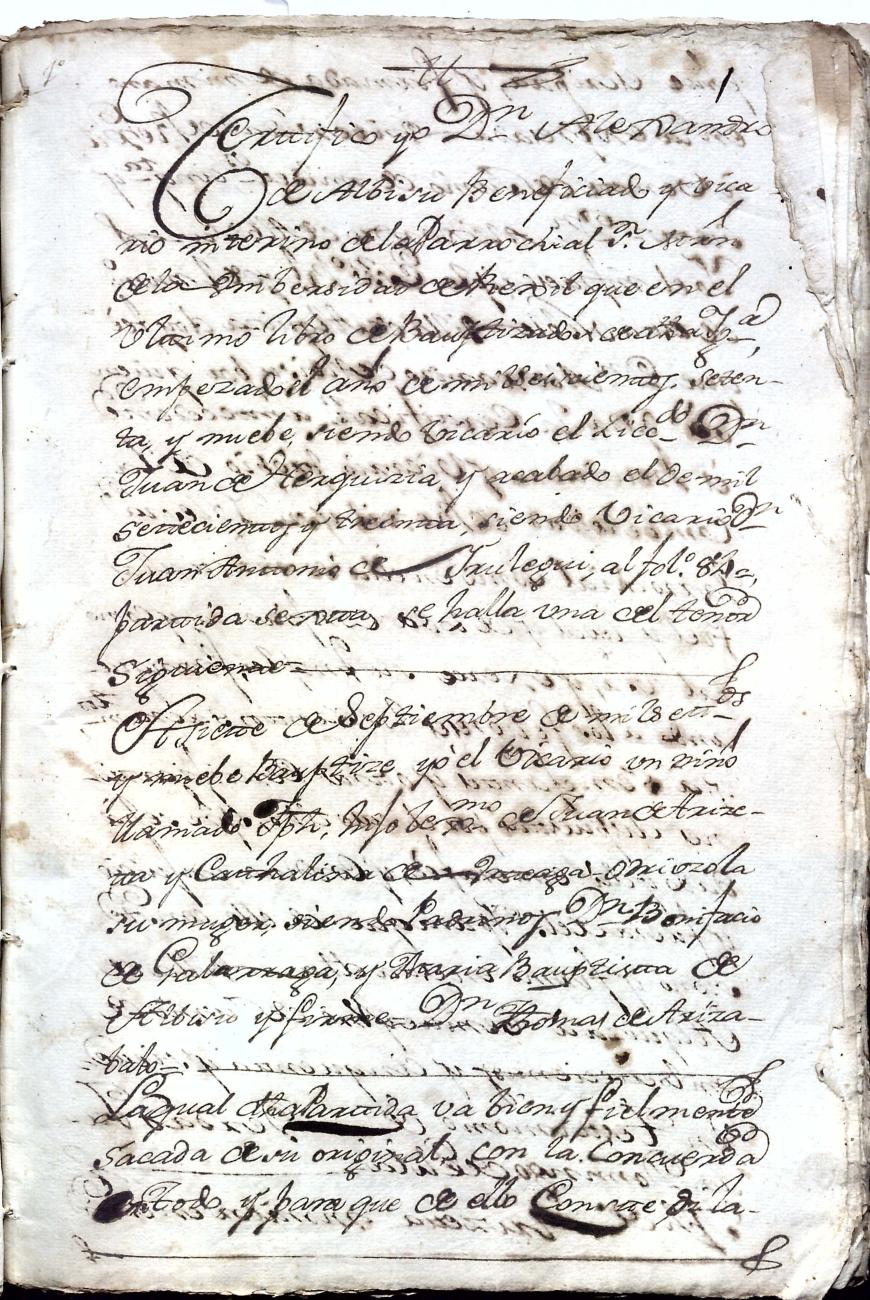 1
Certifico yo Dn Alexandro
de Albisu Beneficiado y vica-
rio interino de la Parrochial Sn Mrn
de la Unibersidad de Rexil que en el
Ultimo libro de Bauptizados de dha Yga
empezado il año de mil Seiscientos Seten-
ta, y nuebe, siendo Vicario el Licdo Dn
Juan de Herquizia y acabado el de mil
settecientos y treinta, siendo Vicario Dn
Juan Antonio de Irulegui, al fol.
partida sexta, se halla vna del tenor
Siguiente
A siete de Septiembre de mil settos
y nuebe Bauptize yo el Vicario vn niño
llamado Jph, hijo lexmo de Juan de Arize-
ta y Cathalina de Odriozola
su muger, siendo Padrinos Dn Bonifacio
de Galarraga, y Maria Bauptista de
Albisu y firme Dn Thomas de Ariza-
balo
La qual dha Partida va bien y fielmente
sacada de su original, con la Concuerda
en todo y para que de ello Conste di la